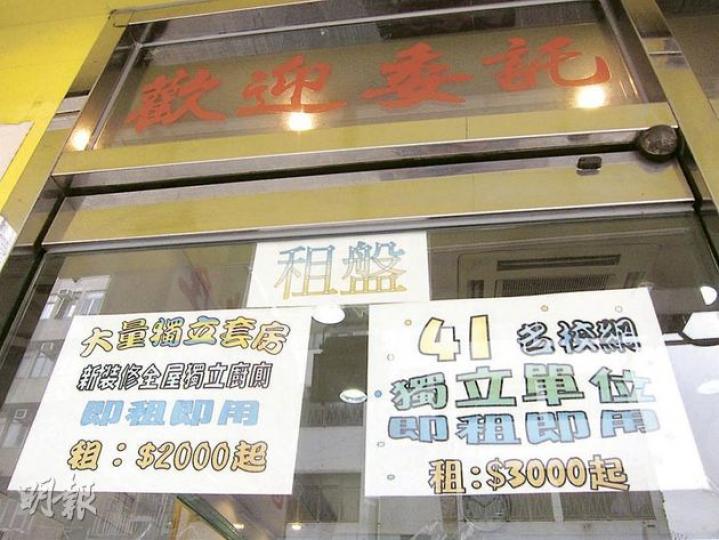 歡迎委託
租盤
大量獨立套房
新裝修全屋獨立廚廁
即租即用
租：$2000起
41 名校網
獨立單位
即租即用
租:$3000起
明報